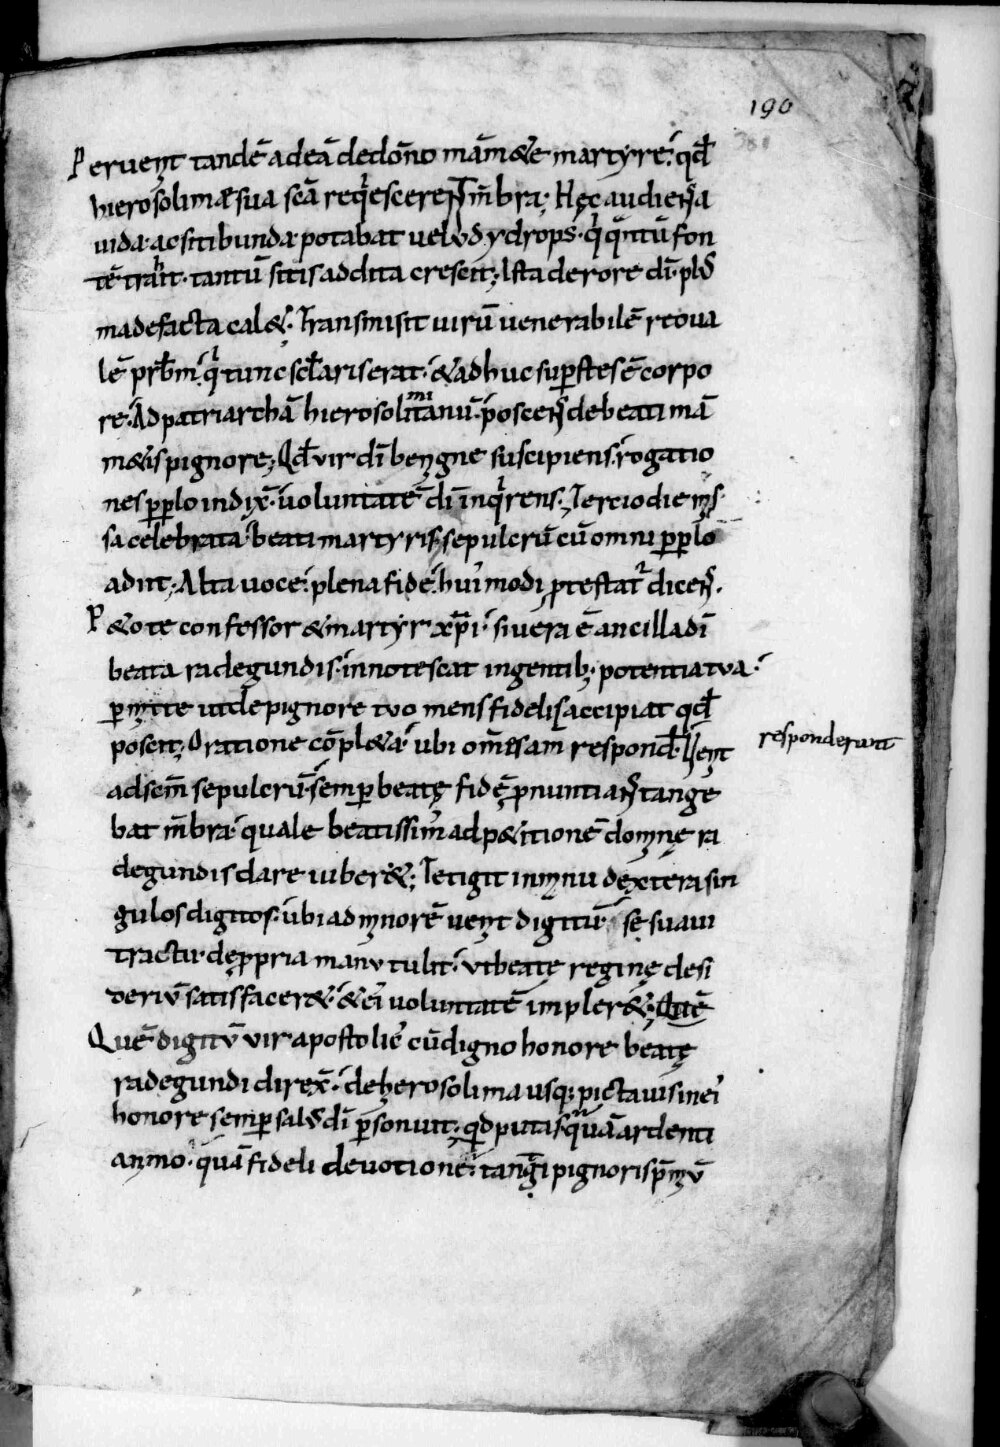 190
Peruenit tandē ad eā de dōno māmete martyre qđ
hierosolimae sua scā reqiescerent m̄bra; Hęc audiens a
uida ac sitibunda potabat uelud ydrops qi qāntū fon
tē trahit tantū sitis addita crescit; Ista de rore dī plus
madefacta calet; Transmisit uirū uenerabilē reoua
lē prb̄m qi tunc sc̄laris erat & adhuc suꝑstes ē corpo
re; Ad patriarchā hierosolimitanū poscens de beati mā
metis pignore; Qđ vir dī benigne suscipiens rogatio
nes ꝑ pp̄lo indix̄ uoluntatē dī inqirens; Tercio die mis
sa celebrata beati martyris sepulcrū cū omni pp̄lo
adiit; Alta uoce plena fide hui'modi ꝓtestatr dicens
Peto te confessor & martyr xp̄i si uera ē ancilla dī
beata radegundis innotescat in gentib; potentia tua
ꝑmitte ut de pignore tuo mens fidelis accipiat qđ
poscit; Oratione cōpleta ubi om̄s am̄ respond̄ Venit
responderunt
ad scm̄ sepulcrū semꝑ beatę fidē ꝓnuntians tange
bat m̄bra quale beatissim' ad petitionē domnę ra
degundis dare iuberet; Tetigit in manu dextera sin
gulos digitos ubi ad minorē uenit digitū se suaui
tractu de ꝓpria manu tulit ut beatę reginę desi
deriū satisfaceret & ei' uoluntatē impleret;
Quē digitū vir apostolic' cū digno honore beatę
radegundi direx̄ de herosolima usq; pictauis in ei'
honore semꝑ salus dī ꝑsonuit; qid putas quā ardenti
animo quā fideli deuotione tanti pignoris p̄miū